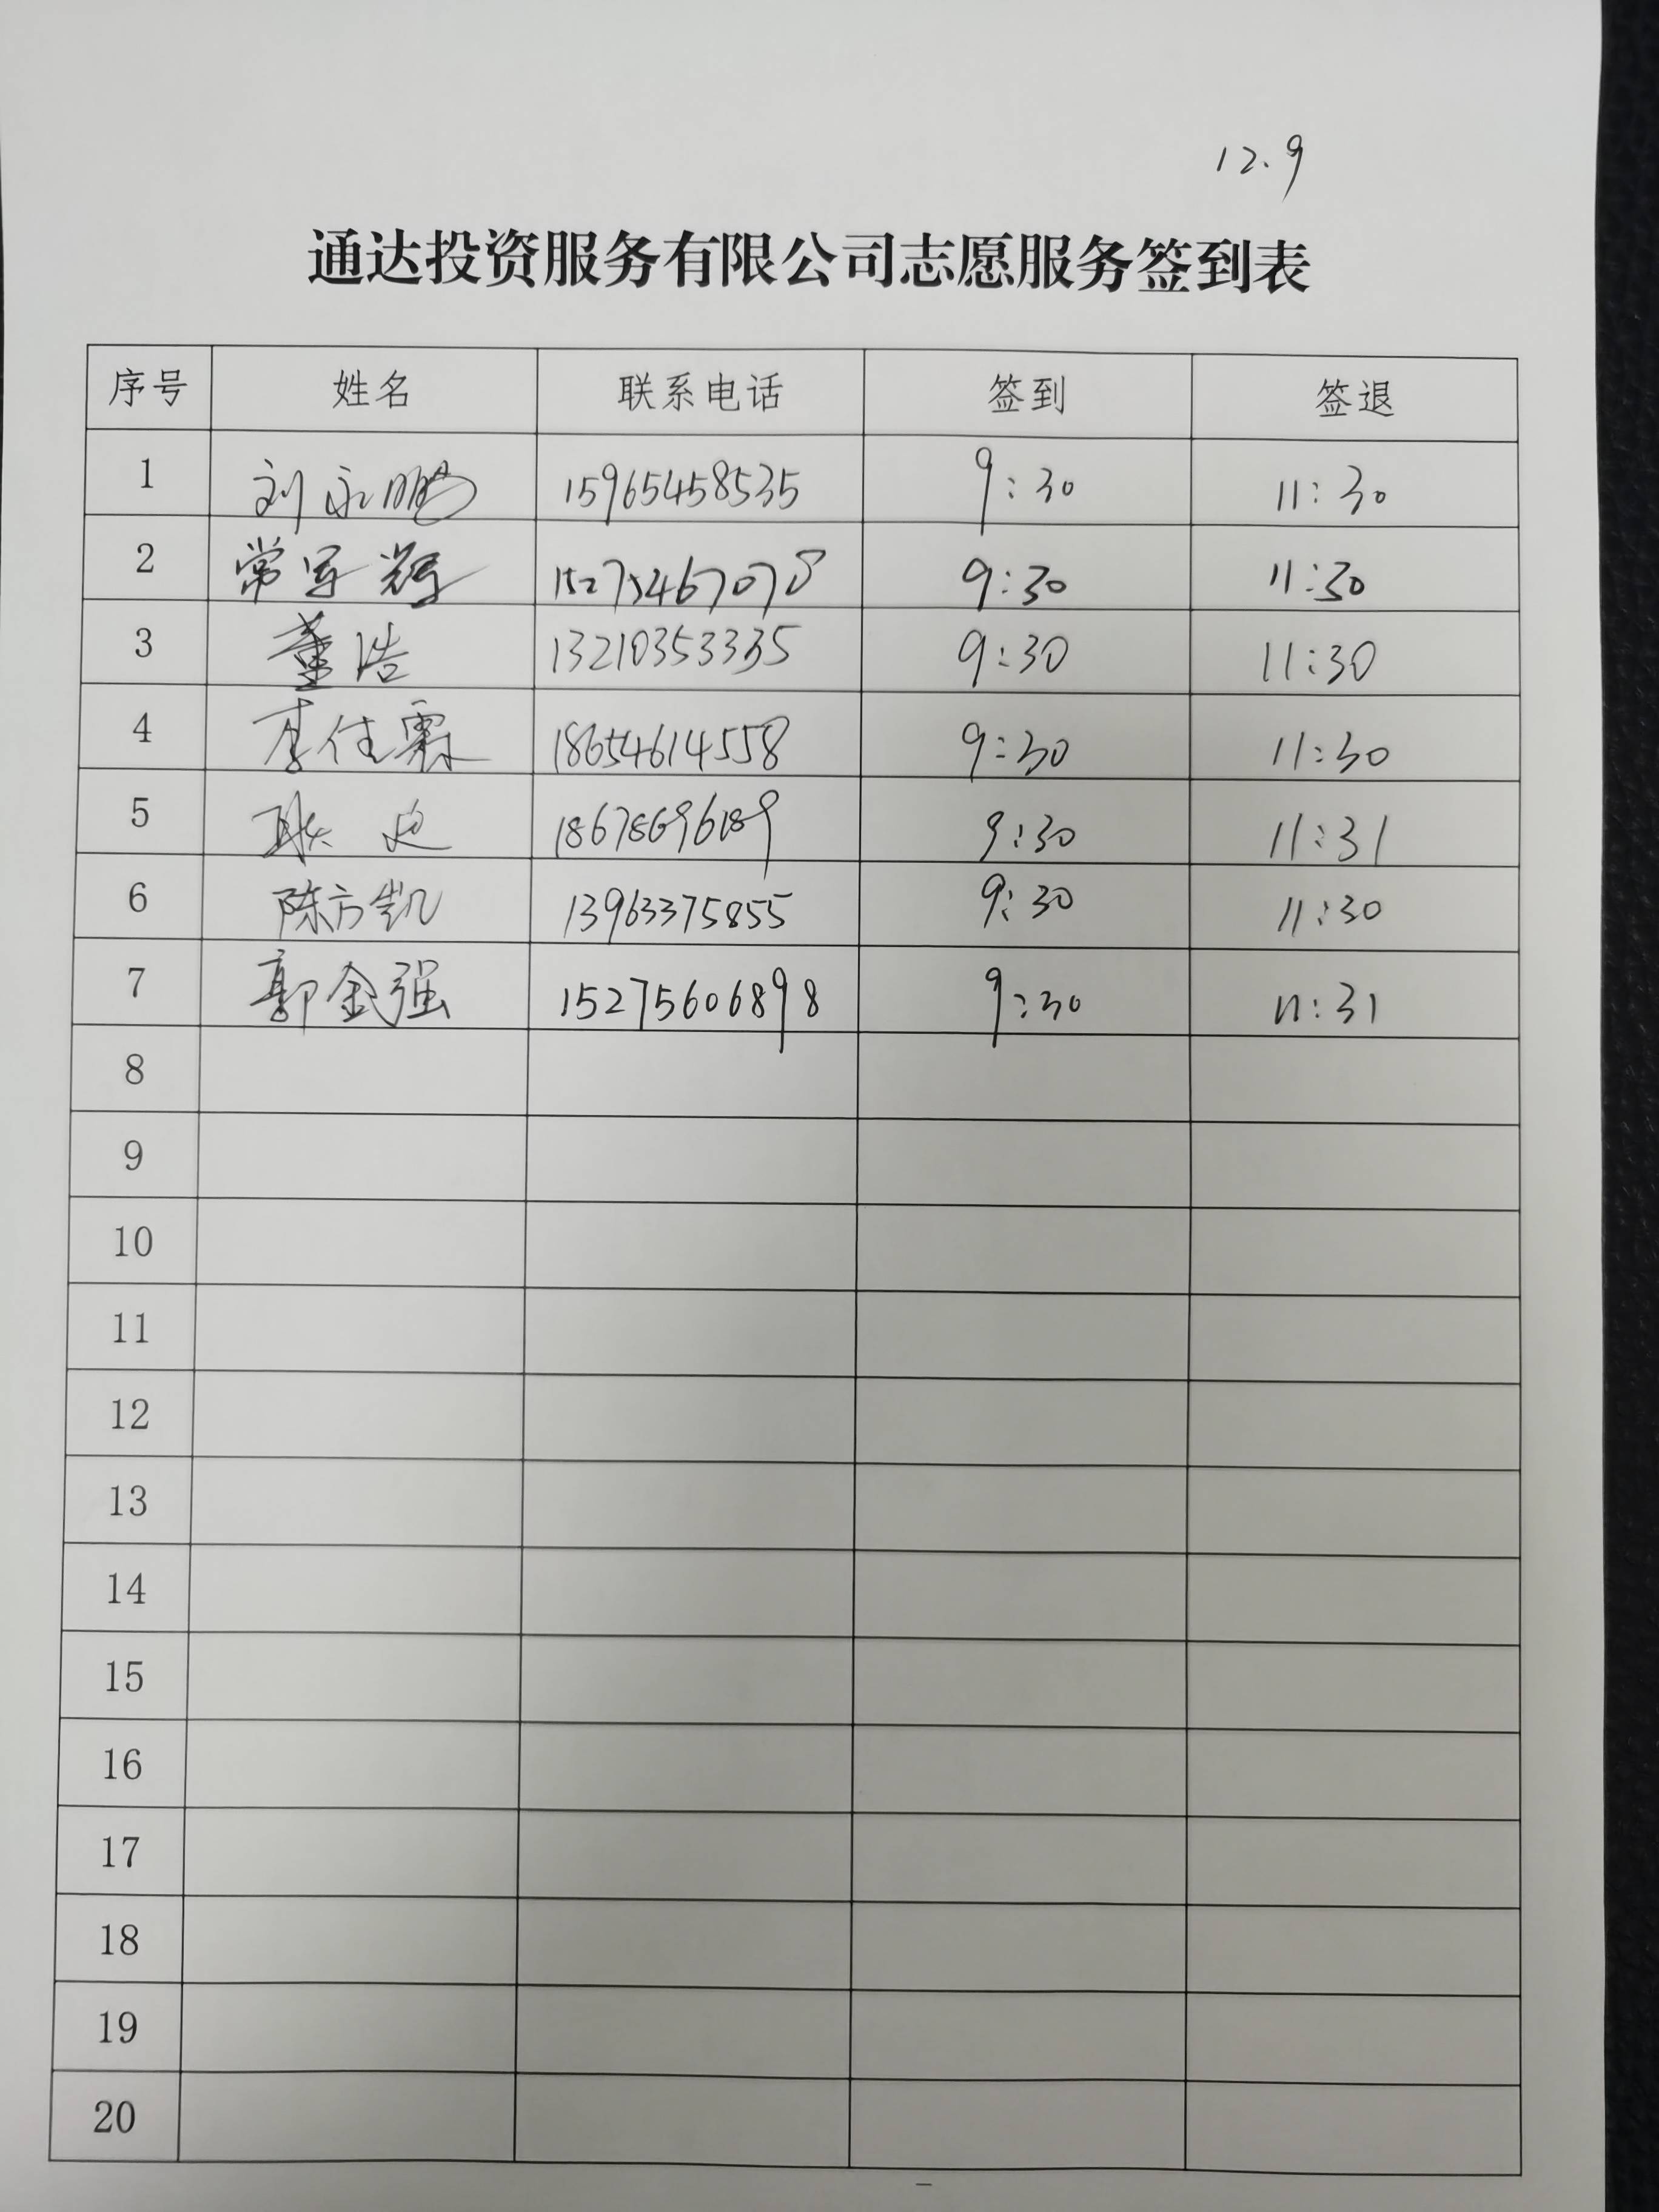 12.9
通达投资服务有限公司志愿服务签到表
序号 姓名 联系电话 签到 签退
1 刘永鹏 15965458535 9:30 11:30
2 常军辉 15275467078 9:30 11:30
3 董浩 13210353335 9:30 11:30
4 李佳霖 18654614558 9:30 11:30
5 耿 18678696189 9:30 11:31
6 陈方凯 13963375855 9:30 11:30
7 郭金强 15275606898 9:30 11:31
8
9
10
11
12
13
14
15
16
17
18
19
20